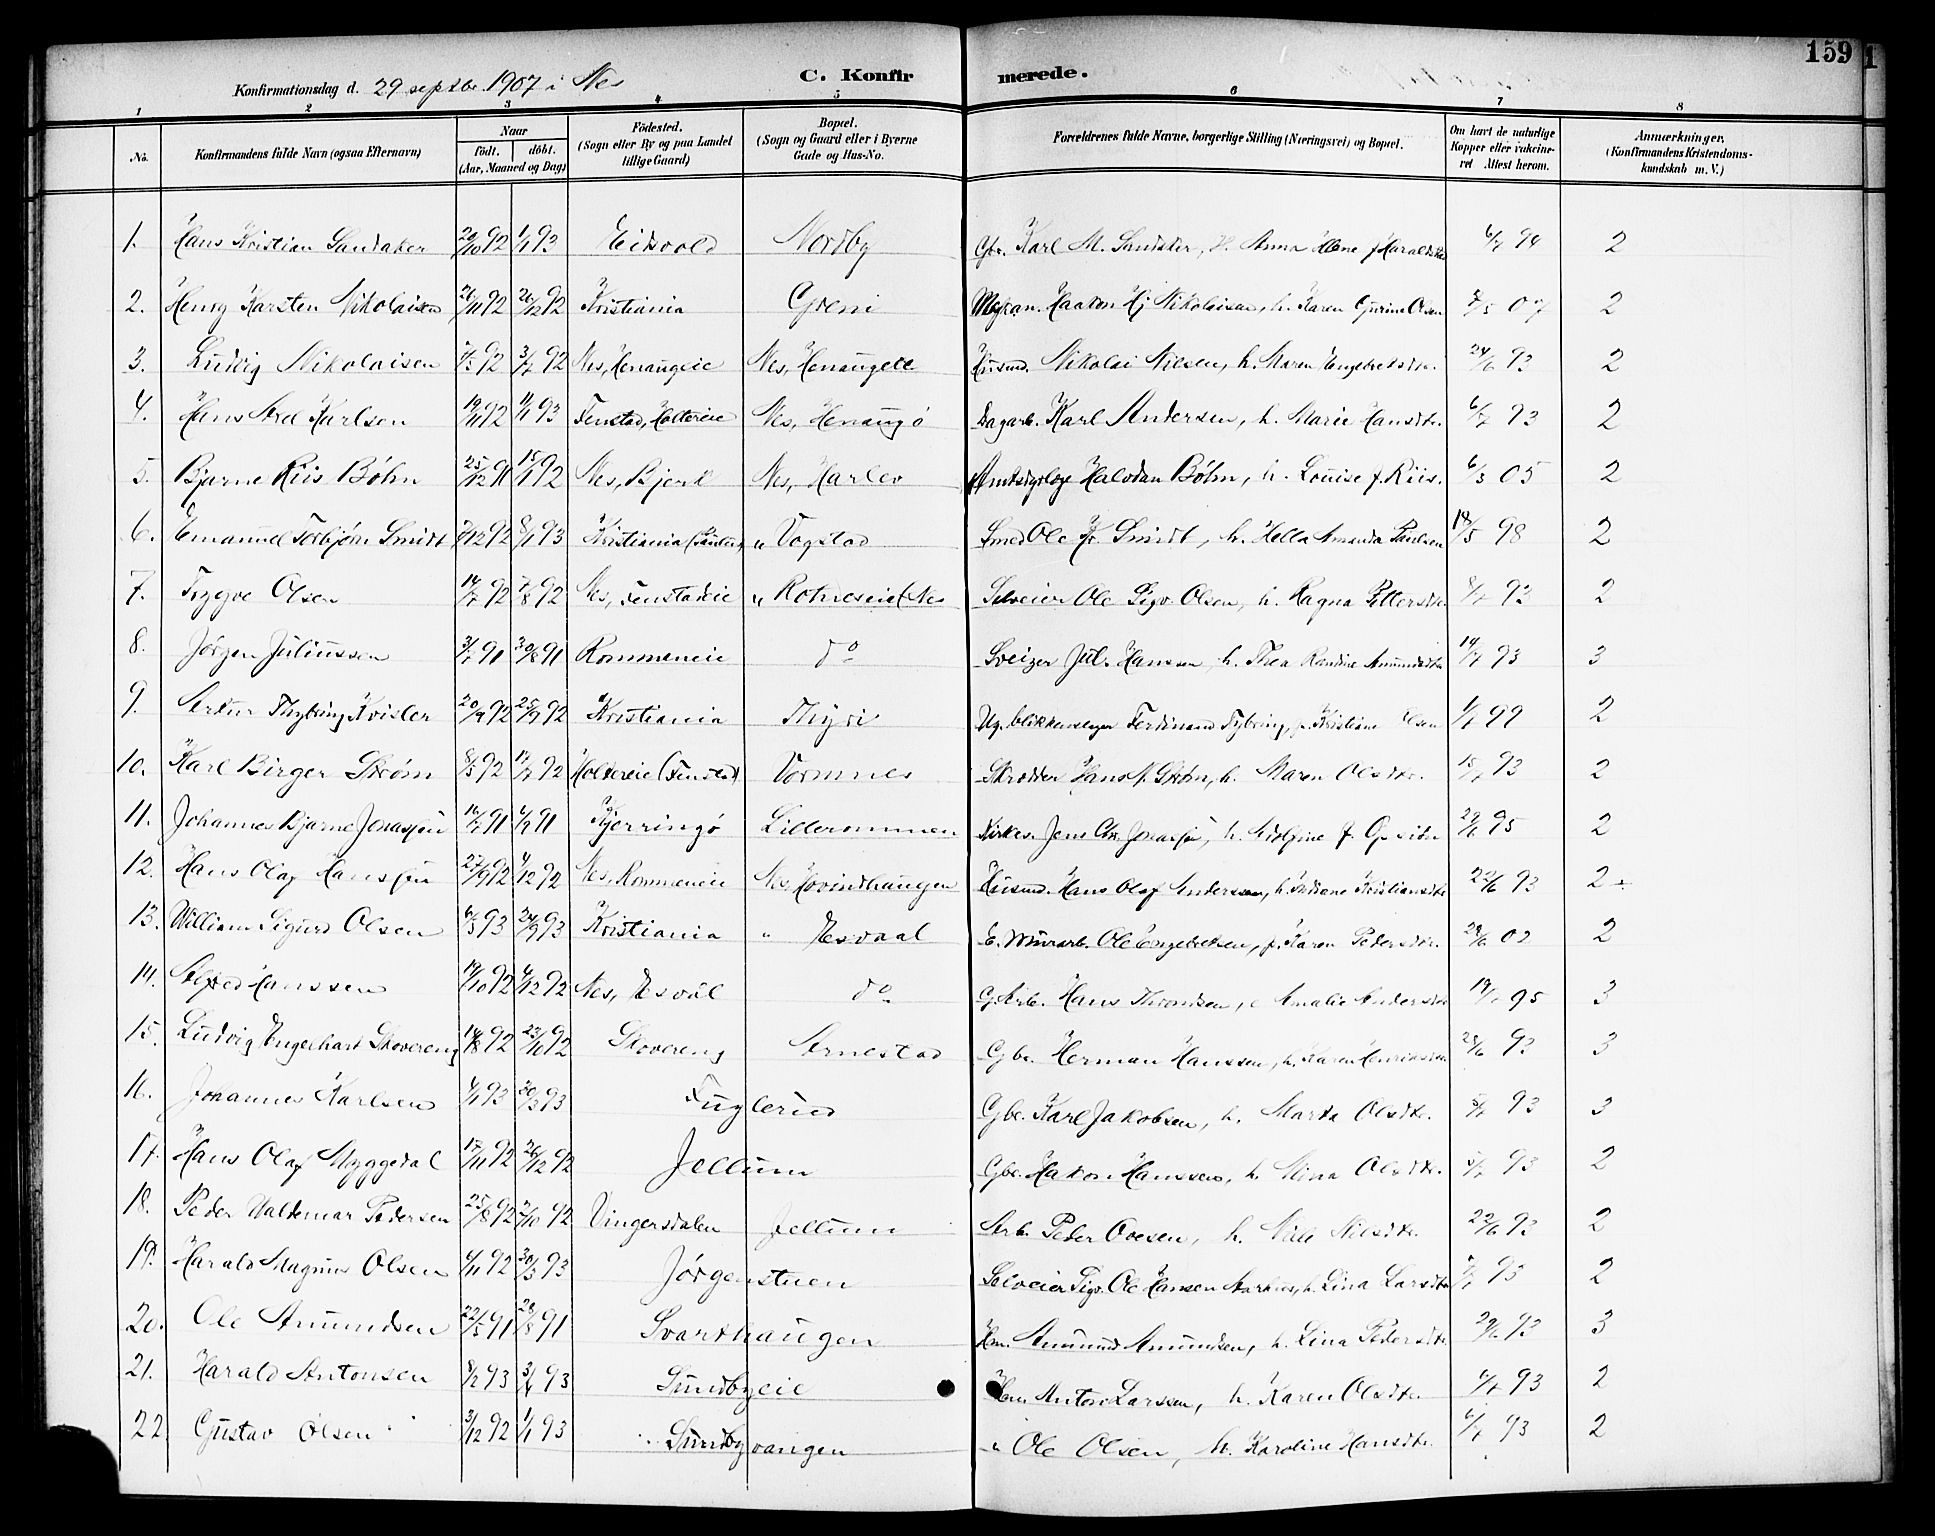 159
C. Konfirmerede.
Konfirmationsdag d. 29 septbr. 1907 i Nes
1 2 3 4 5 6 7 8
No. Konfirmandens fulde Navn (ogsaa Efternavn) Naar födt. döbt. (Aar, Maaned og Dag) Födested. (Sogn eller By og paa Landet tillige Gaard) Bopæl. (Sogn og Gaard eller i Byerne Gade og Hus-No. Forældrenes fulde Navne, borgerlige Stilling (Næringsvei) og Bopæl. Om havt de naturlige Kopper eller vakcineret Attest herom. Anmærkninger. (Konfirmandens Kristendomskundskab m. V.)
1. Hans Kristian Sandaker 20/10 92 1/1 93 Eidsvold Nordby Gbr. Karl M. Sandaker, H. Anna Elene f. 6/7 94 2
2. Henry Karsten Nikolaisen 26/11 92 26/12 92 Kristiania Greni Haakon Hj Nikolaisen, h. Karen Gurine Olsen 07 2
3. Ludvig Nikolaisen 92 3/7 92 Nes, Henaugeie Nes, Henaugeie Husmd. Nikolai Nilsen, h. Maren Engebretsdtr. 24/6 93 2
4. Hans Axel Karlsen 19/11 92 1/1 93 Fenstad, Holtereie Nes, Henaugö Dagarb. Karl Andersen, h. Marie Hansdtr. 6/7 93 2
5. Bjarne Riis Böhn 25/12 91 15/1 92 Nes, Bjerk Nes, Harlev Halvdan Böhn, h. Louise f. Riis. 6/3 05 2
6. Emanuel Torbjörn Smidt 92 8/1 93 Kristiania " Vogstad Smed Ole Smidt, h. Hella Amanda Paulsen 18/5 98 2
7. Trygve Olsen 14/7 92 7/8 92 Nes, Fenstadeie " Ole Sigv. Olsen, h. Ragna Pettersdtr. 93 2
8. Jörgen Juliussen 3/7 91 30/8 91 Rommeneie do Sveizer Jul. Hanssen, h. Thea Randine Amundsdtr 14/7 93 3
9. Artur Thybring Kvisler 20/9 92 25/9 92 Kristiania Thyri Ug. blikkenslager Ferdinand Tybring, p. Kristiane Olsen 99 2
10. Karl Birger Ström 8/5 92 17/7 92 Holtereie (Fenstad) Vormnes Skrædder Hans Ström, h. Maren Olsdtr. 15/7 93 2
11. Johannes Bjarne Jonassen 16/7 91 91 Kjerringö Lillerommen Kirkes. Jens Chr. Jonassen, h. 95 2
12. Hans Olaf Hanssen 27/9 92 4/12 92 Nes, Rommeneie Nes, Hovindhaugen Husmd. Hans Olaf Anderssen, h. Kristiansdtr 22/6 93 2
13. William Sigurd Olsen 6/5 93 24/9 93 Kristiania " Nesvaal E. Murarb. Ole Engebretsen, p. Karen Pedersdtr. 02 2
14. Alfred Hanssen 19/10 92 4/12 92 Nes, Nesvål do G. Arb. Hans Throndsen, Amalie Andersdtr 95 3
15. Ludvig Engelhart Skovereng 14/8 92 23/10 92 Skovereng Arnestad Gbr. Herman Hanssen, h. Karen Henriksdtr 93 3
16. Johannes Karlsen 4/1 93 30/3 93 Fuglerud Gbr. Karl Jakobsen, h. Marta Olsdtr. 5/7 93 3
17. Hans Olaf Myggedal 17/11 92 26/12 92 Jellum Gbr. Hakon Hanssen, h. Mina Olsdtr. 5/7 93 2
18. Peder Valdemar Pedersen 25/8 92 2/10 92 Vingersdalen Jellum Arb. Peder Ovesen, h. Nilsdtr. 22/6 93 2
19. Harald Magnus Olsen 4/11 92 30/3 93 Jörgenstuen Selveier Sigv. Ole Hansen Aarhus, h. Lina Larsdtr 95 2
20. Ole Amundsen 22/5 91 28/8 91 Svarthaugen Hm. Amund Amundsen, h. Lina Pedersdtr. 29/6 93 3
21. Harald Antonsen 8/2 93 3/4 93 Sundbyeie Hm Anton Larssen, h. Karen Olsdtr. 93 2
22. Gustav Olsen 3/12 92 1/1 93 Sundbyvangen " Ole Olsen, h. Karoline Hansdtr. 6/7 93 2